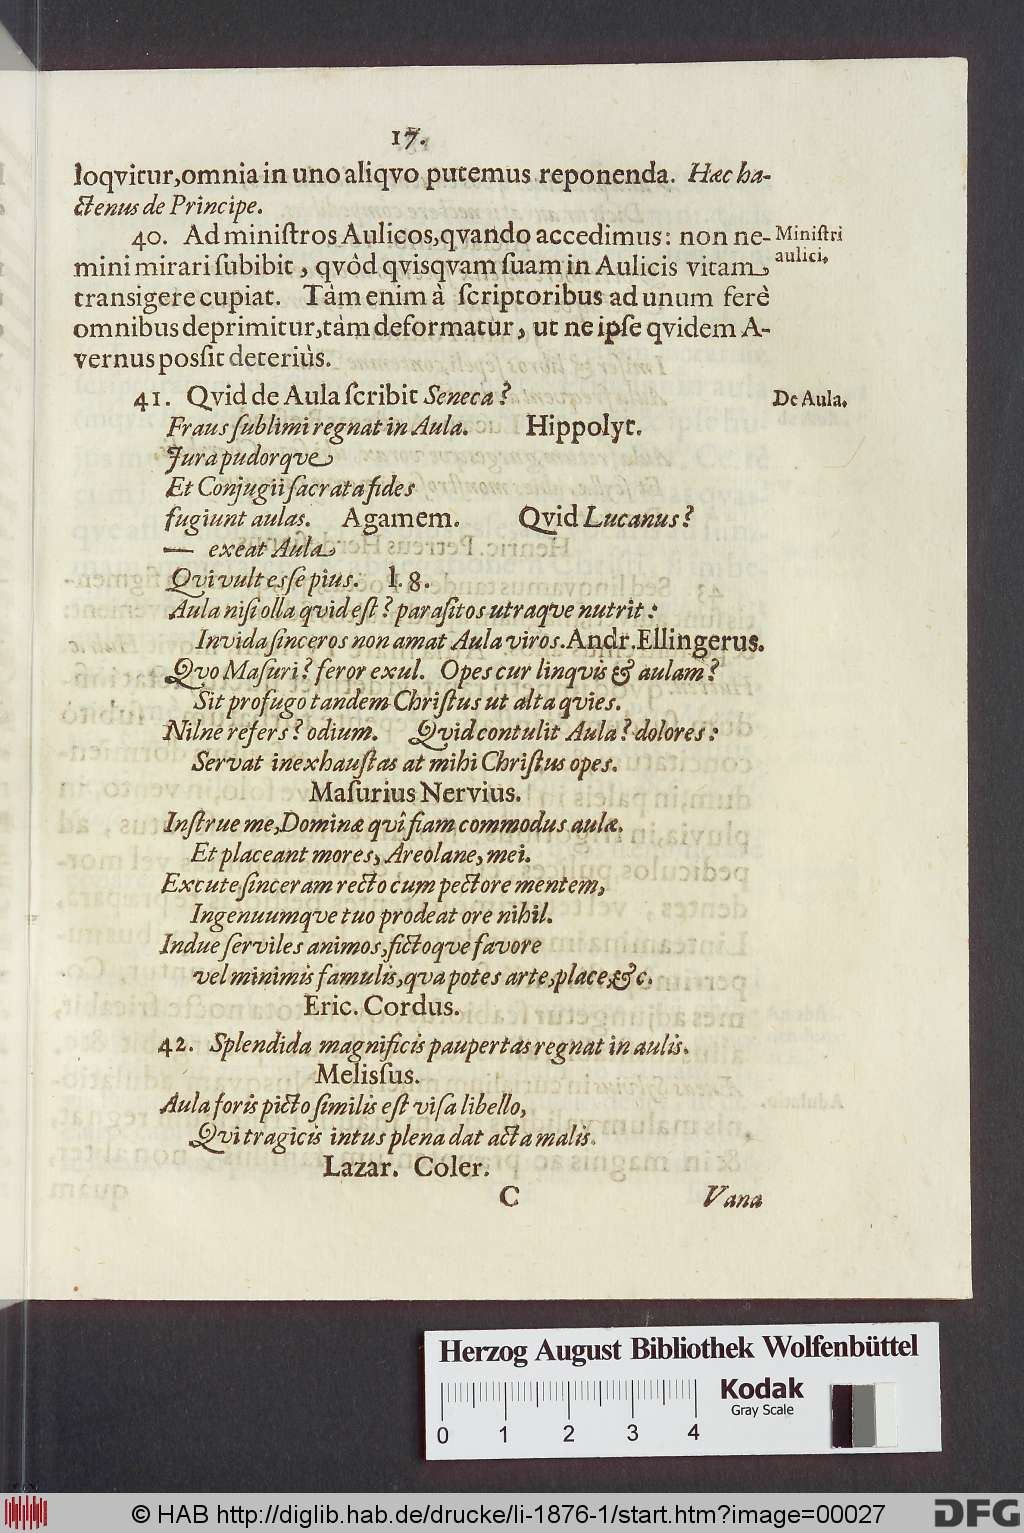 17.
loqvitur, omnia in uno aliqvo putemus reponenda. Hæc ha-
ctenus de Principe.
40. Ad miniſtros Aulicos, qvando accedimus: non ne-
mini mirari ſubibit, qvòd qvisqvam ſuam in Aulicis vitam
transigere cupiat. Tàm enim à ſcriptoribus ad unum ferè
omnibus deprimitur, tàm deformatur, ut ne ipſe qvidem A-
vernus possit deteriùs.
Miniſtri
aulici.
41. Qvid de Aula ſcribit Seneca?
De Aula.
Fraus ſublimi regnat in Aula. Hippolyt.
Jura pudorqve
Et Conjugii ſacrata fides
fugiunt aulas. Agamem. Qvid Lucanus?
— exeat Aula
Qvi vult eſſe pius. l. 8.
Aula niſi olla qvid eſt? paraſitos utraqve nutrit:
Invida ſinceros non amat Aula viros. Andr. Ellingerus.
Qvo Maſuri? feror exul. Opes cur linqvis & aulam?
Sit profugo tandem Chriſtus ut alta qvies.
Nilne refers? odium. Qvid contulit Aula? dolores:
Servat inexhauſtas at mihi Chriſtus opes.
Maſurius Nervius.
Inſtrue me, Dominæ qvî fiam commodus aulæ.
Et placeant mores, Areolane, mei.
Excute ſinceram recto cum pectore mentem,
Ingenuumqve tuo prodeat ore nihil.
Indue ſerviles animos, fictoqve favore
vel minimis famulis, qva potes arte, place, &c.
Eric. Cordus.
42. Splendida magnificis paupertas regnat in aulis.
Melisſus.
Aula foris picto ſimilis eſt viſa libello,
Qvi tragicis intus plena dat acta malis.
Lazar. Coler.
C Vana
Herzog August Bibliothek Wolfenbüttel
Kodak
Gray Scale
0 1 2 3 4
© HAB http://diglib.hab.de/drucke/li-1876-1/start.htm?image=00027
DFG